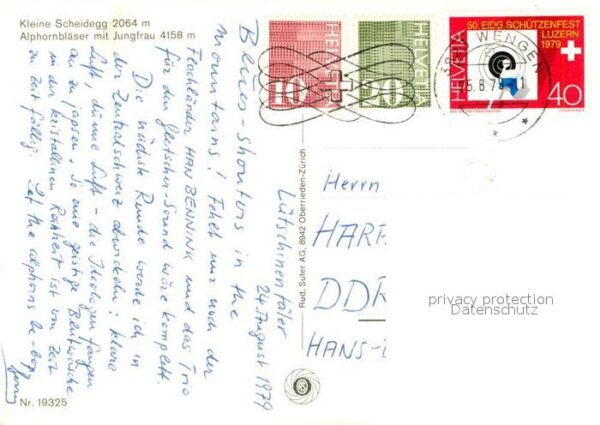 Kleine Scheidegg 2064 m
Alphornbläser mit Jungfrau 4158 m
HELVETIA
10
HELVETIA
20
HELVETIA
50. EIDG SCHÜTZENFEST
LUZERN
1979
40
WENGEN
Lütschinentäler
24. August 1979
Blues-Shouters in the
mountains! Fehlt nur noch der
Flachländer HAN BENNINK und das Trio
für den Gletscher-Sound wäre komplett.
Die nächste Runde werde ich in
der Zentralschweiz abwickeln: klare
Luft, dünne Luft – die Ideologen fangen
an zu japsen. So eine geistige Blutwäsche
in der kristallinen Reinheit ist von Zeit
zu Zeit fällig. Let the alphorns be-bop
Rud. Suter AG, 8942 Oberrieden-Zürich
Herrn
HARR
DDR
HANS-
privacy protection
Datenschutz
Nr. 19325